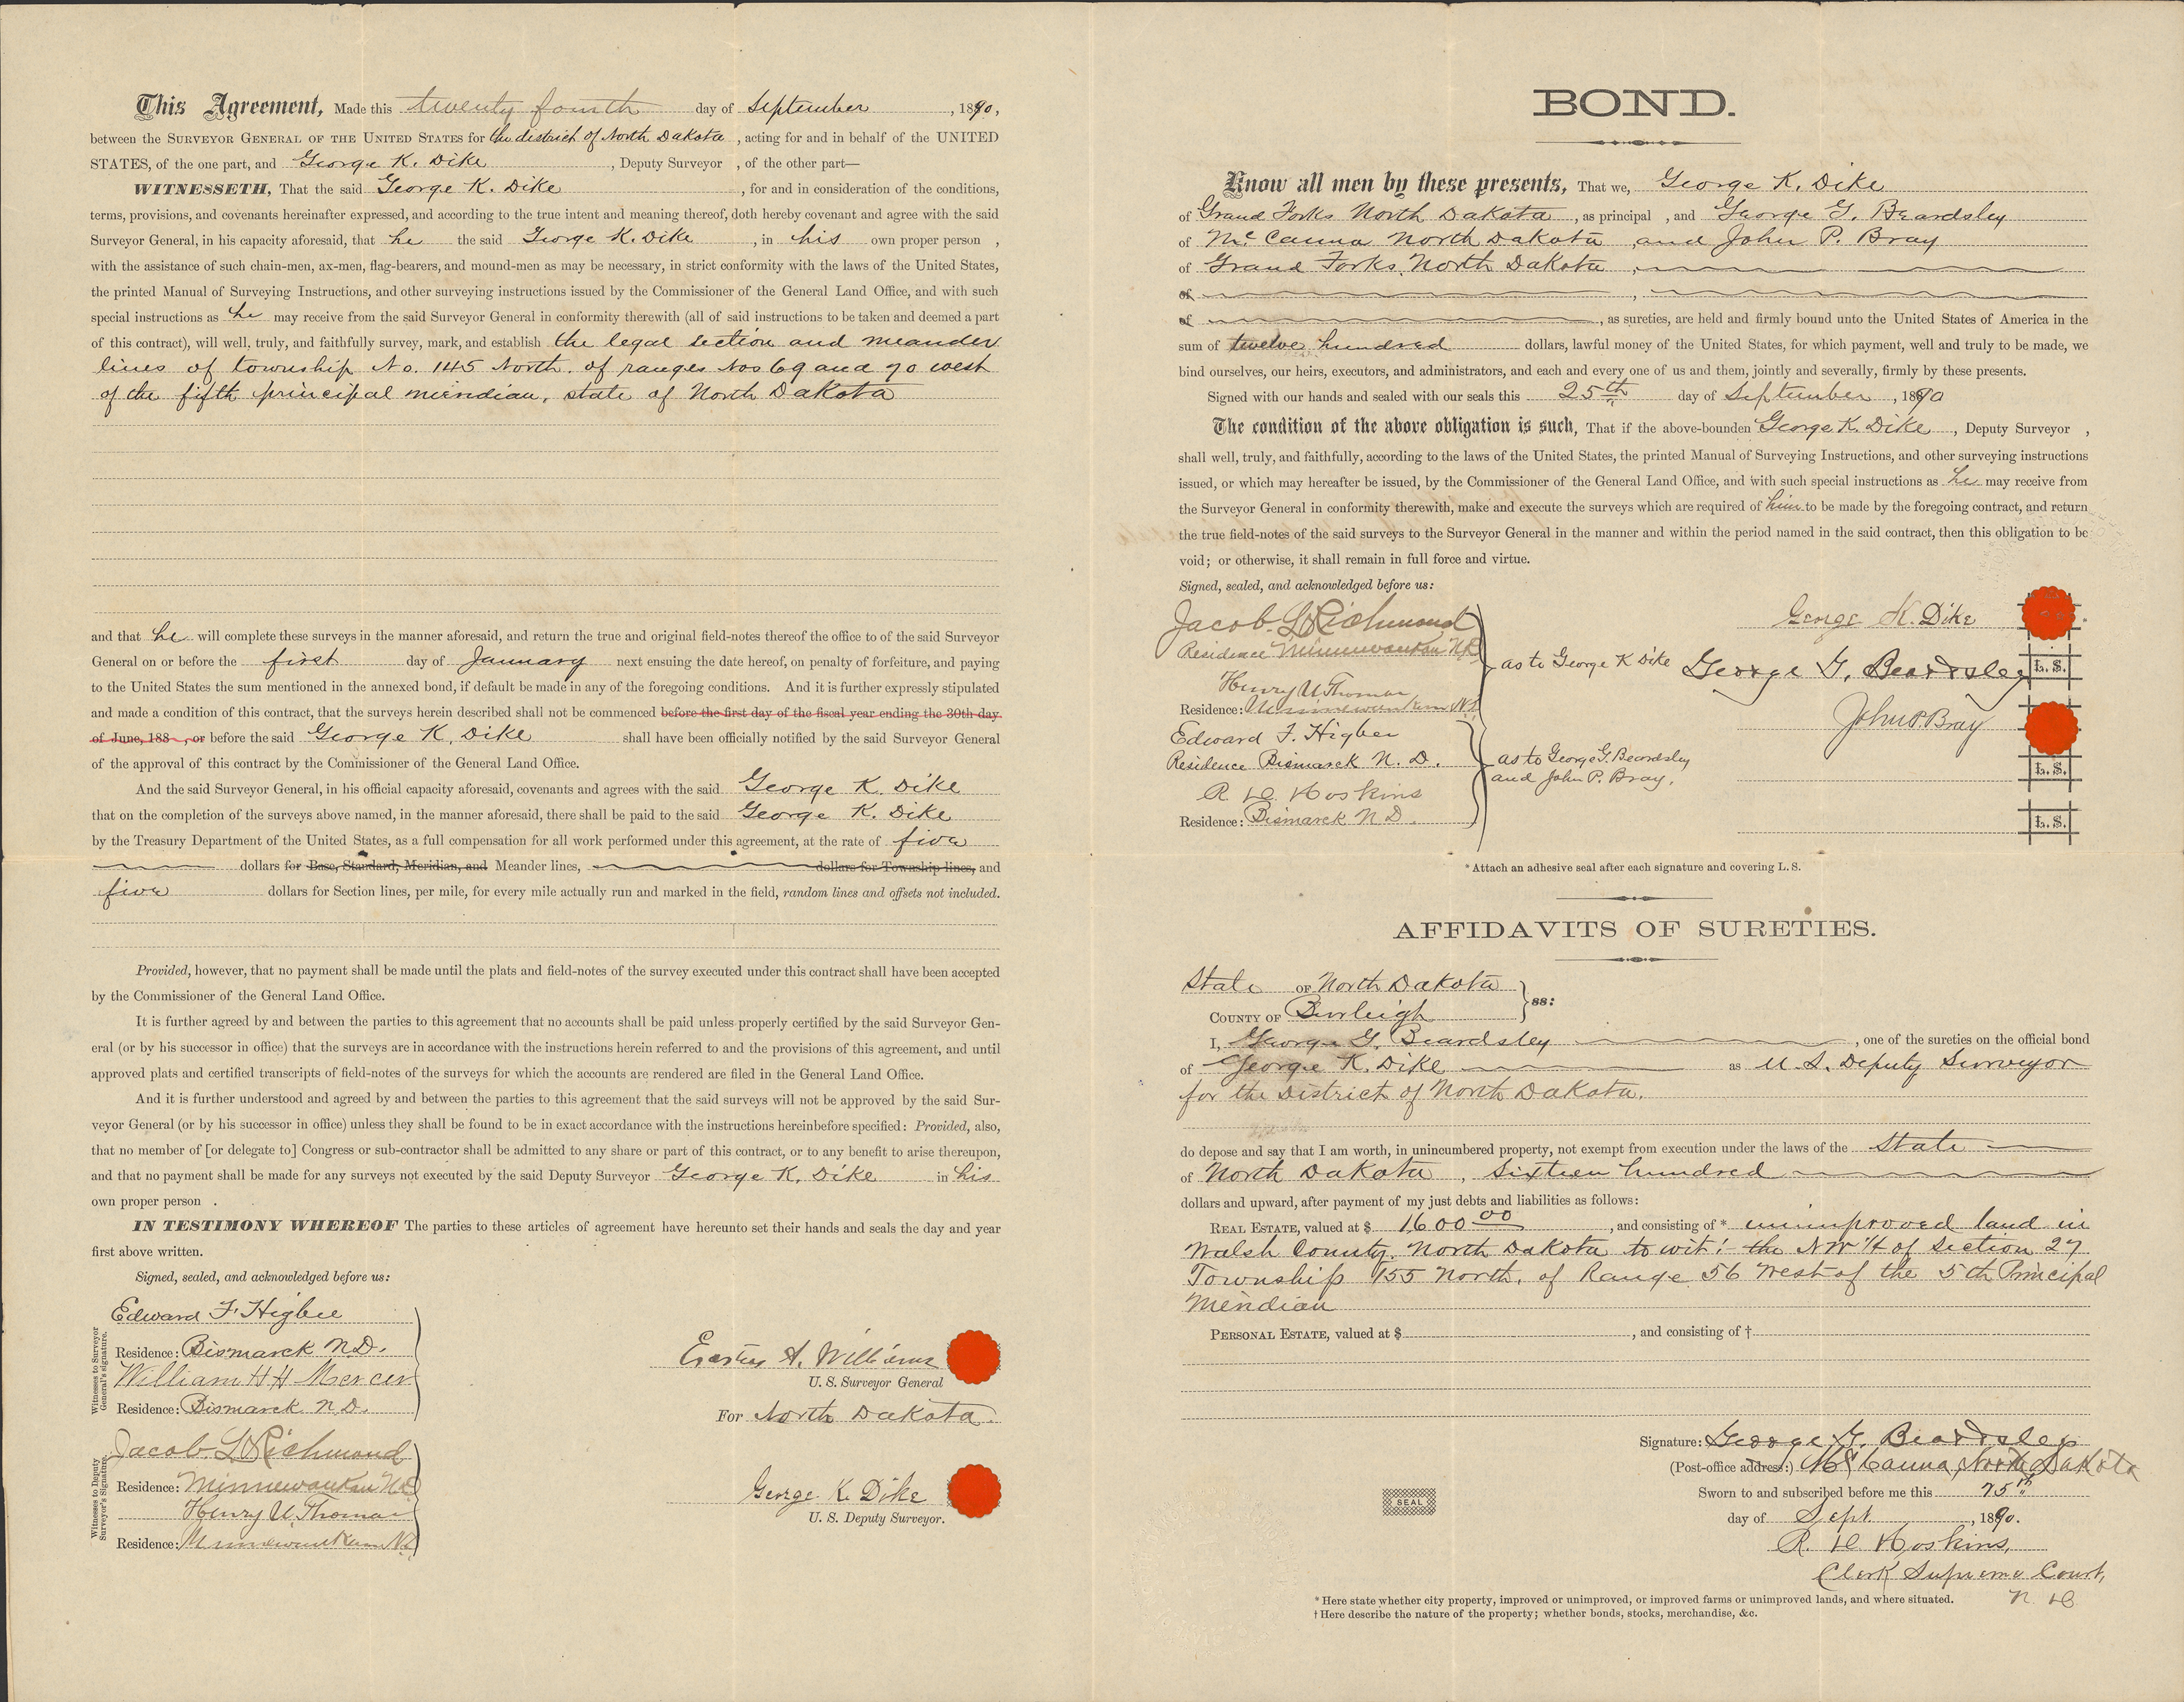 This Agreement, Made this twenty fourth day of September, 1890,
between the SURVEYOR GENERAL OF THE UNITED STATES for the district of North Dakota, acting for and in behalf of the UNITED
STATES, of the one part, and George K. Dike, Deputy Surveyor , of the other part—
WITNESSETH, That the said George K. Dike, for and in consideration of the conditions,
terms, provisions, and covenants hereinafter expressed, and according to the true intent and meaning thereof, doth hereby covenant and agree with the said
Surveyor General, in his capacity aforesaid, that he the said George K. Dike, in his own proper person ,
with the assistance of such chain-men, ax-men, flag-bearers, and mound-men as may be necessary, in strict conformity with the laws of the United States,
the printed Manual of Surveying Instructions, and other surveying instructions issued by the Commissioner of the General Land Office, and with such
special instructions as he may receive from the said Surveyor General in conformity therewith (all of said instructions to be taken and deemed a part
of this contract), will well, truly, and faithfully survey, mark, and establish the legal section and meander
lines of township No. 145 North. of ranges Nos 69 and 70 west
of the fifth principal meridian, state of North Dakota
and that he will complete these surveys in the manner aforesaid, and return the true and original field-notes thereof the office to of the said Surveyor
General on or before the first day of January next ensuing the date hereof, on penalty of forfeiture, and paying
to the United States the sum mentioned in the annexed bond, if default be made in any of the foregoing conditions. And it is further expressly stipulated
and made a condition of this contract, that the surveys herein described shall not be commenced before the first day of the fiscal year ending the 30th day
of June, 188 , or before the said George K. Dike shall have been officially notified by the said Surveyor General
of the approval of this contract by the Commissioner of the General Land Office.
And the said Surveyor General, in his official capacity aforesaid, covenants and agrees with the said George K. Dike
that on the completion of the surveys above named, in the manner aforesaid, there shall be paid to the said George K. Dike
by the Treasury Department of the United States, as a full compensation for all work performed under this agreement, at the rate of five
dollars for Base, Standard, Meridian, and Meander lines, dollars for Township lines, and
five dollars for Section lines, per mile, for every mile actually run and marked in the field, random lines and offsets not included.
Provided, however, that no payment shall be made until the plats and field-notes of the survey executed under this contract shall have been accepted
by the Commissioner of the General Land Office.
It is further agreed by and between the parties to this agreement that no accounts shall be paid unless properly certified by the said Surveyor Gen-
eral (or by his successor in office) that the surveys are in accordance with the instructions herein referred to and the provisions of this agreement, and until
approved plats and certified transcripts of field-notes of the surveys for which the accounts are rendered are filed in the General Land Office.
And it is further understood and agreed by and between the parties to this agreement that the said surveys will not be approved by the said Sur-
veyor General (or by his successor in office) unless they shall be found to be in exact accordance with the instructions hereinbefore specified: Provided, also,
that no member of [or delegate to] Congress or sub-contractor shall be admitted to any share or part of this contract, or to any benefit to arise thereupon,
and that no payment shall be made for any surveys not executed by the said Deputy Surveyor George K. Dike in his
own proper person .
IN TESTIMONY WHEREOF The parties to these articles of agreement have hereunto set their hands and seals the day and year
first above written.
Signed, sealed, and acknowledged before us:
Witnesses to Surveyor General's signature.
Edward F. Higbee
Residence: Bismarck N.D.
William H H Mercer
Residence: Bismarck N.D.
Erastus A. Williams
U. S. Surveyor General
For North Dakota.
Witnesses to Deputy Surveyor's Signature.
Jacob L Richmond
Residence: Minnewaukan ND
Henry U Thomas
Residence: Minnewaukan ND
George K. Dike
U. S. Deputy Surveyor.
BOND.
Know all men by these presents, That we, George K. Dike
of Grand Forks North Dakota, as principal , and George G. Beardsley
of Mc Canna North Dakota, and John P. Bray
of Grand Forks, North Dakota,
of ,
of , as sureties, are held and firmly bound unto the United States of America in the
sum of twelve hundred dollars, lawful money of the United States, for which payment, well and truly to be made, we
bind ourselves, our heirs, executors, and administrators, and each and every one of us and them, jointly and severally, firmly by these presents.
Signed with our hands and sealed with our seals this 25th day of September, 1890
The condition of the above obligation is such, That if the above-bounden George K. Dike, Deputy Surveyor ,
shall well, truly, and faithfully, according to the laws of the United States, the printed Manual of Surveying Instructions, and other surveying instructions
issued, or which may hereafter be issued, by the Commissioner of the General Land Office, and with such special instructions as he may receive from
the Surveyor General in conformity therewith, make and execute the surveys which are required of him to be made by the foregoing contract, and return
the true field-notes of the said surveys to the Surveyor General in the manner and within the period named in the said contract, then this obligation to be
void; or otherwise, it shall remain in full force and virtue.
Signed, sealed, and acknowledged before us:
Jacob L Richmond
Residence Minnewaukan N.D.
Henry U Thomas
Residence: Minnewaukan ND
as to George K Dike
Edward F. Higbee
Residence Bismarck N. D.
R D Hoskins
Residence: Bismarck N D.
as to George G. Beardsley
and John P. Bray.
George K. Dike
George G. Beardsley L. S.
John P. Bray
L. S.
L. S.
* Attach an adhesive seal after each signature and covering L. S.
AFFIDAVITS OF SURETIES.
State OF North Dakota
COUNTY OF Burleigh
ss:
I, George G. Beardsley, one of the sureties on the official bond
of George K. Dike as U. S. Deputy Surveyor
for the District of North Dakota.
do depose and say that I am worth, in unincumbered property, not exempt from execution under the laws of the State
of North Dakota, Sixteen hundred
dollars and upward, after payment of my just debts and liabilities as follows:
REAL ESTATE, valued at $ 1600 00, and consisting of * unimproved land in
Walsh County, North Dakota to wit: the NW 1/4 of Section 27
Township 155 North, of Range 56 West of the 5th Principal
Meridian
PERSONAL ESTATE, valued at $ , and consisting of †
Signature: George G. Beardsley
(Post-office address:) Mc Canna, North Dakota
Sworn to and subscribed before me this 25th
day of Sept., 1890.
SEAL
R. D. Hoskins,
Clerk Supreme Court,
N. D.
* Here state whether city property, improved or unimproved, or improved farms or unimproved lands, and where situated.
† Here describe the nature of the property; whether bonds, stocks, merchandise, &c.